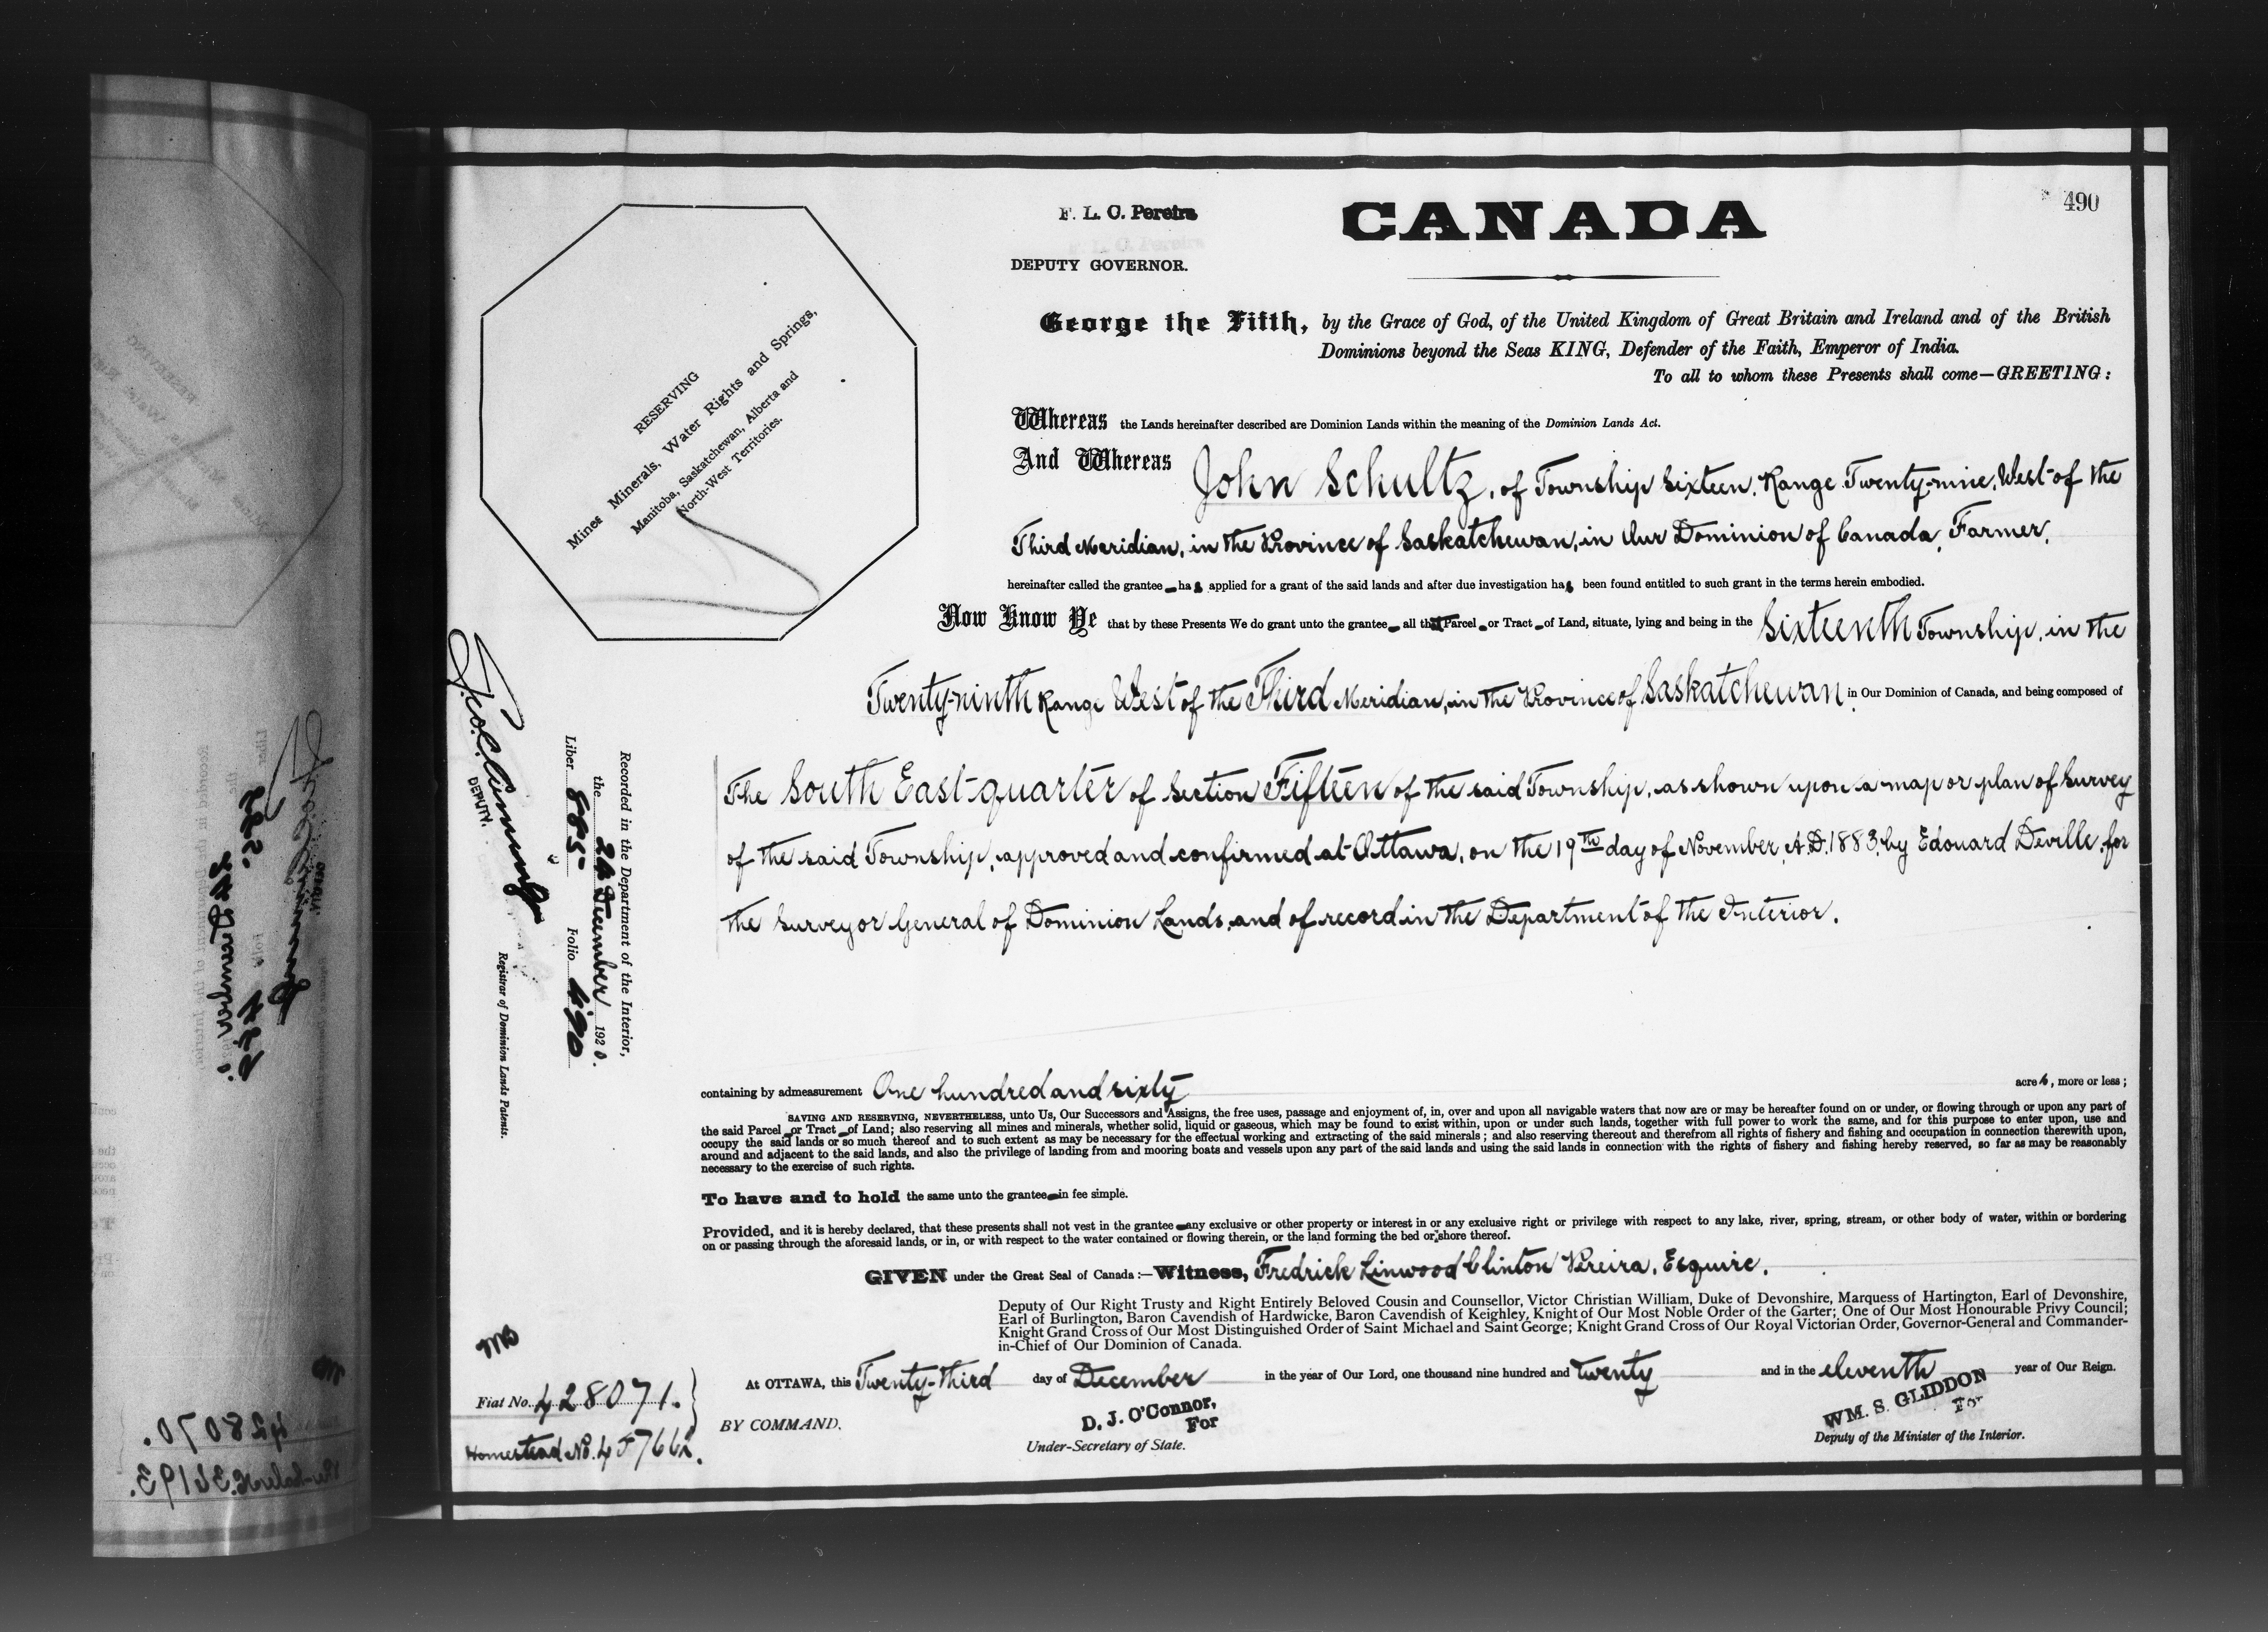 490
F. L. C. Pereira
DEPUTY GOVERNOR.
CANADA
George the Fifth, by the Grace of God, of the United Kingdom of Great Britain and Ireland and of the British
Dominions beyond the Seas KING, Defender of the Faith, Emperor of India.
To all to whom these Presents shall come—GREETING:
RESERVING
Mines Minerals, Water Rights and Springs,
Manitoba, Saskatchewan, Alberta and
North-West Territories.
Whereas the Lands hereinafter described are Dominion Lands within the meaning of the Dominion Lands Act.
And Whereas John Schultz, of Township Sixteen, Range Twenty-nine, West of the
Third Meridian, in the Province of Saskatchewan, in Our Dominion of Canada, Farmer,
hereinafter called the grantee has applied for a grant of the said lands and after due investigation has been found entitled to such grant in the terms herein embodied.
Now Know Ye that by these Presents We do grant unto the grantee all that Parcel or Tract of Land, situate, lying and being in the Sixteenth Township, in the
Twenty-ninth Range West of the Third Meridian, in the Province of Saskatchewan in Our Dominion of Canada, and being composed of
The South East quarter of Section Fifteen of the said Township, as shown upon a map or plan of Survey
of the said Township, approved and confirmed at Ottawa, on the 19th day of November, A.D. 1883, by Edouard Deville, for
the Surveyor General of Dominion Lands, and of record in the Department of the Interior.
Recorded in the Department of the Interior,
the 24 December 1920.
Liber 885 Folio 490
Geo. C. Cumming
DEPUTY.
Registrar of Dominion Lands Patents.
containing by admeasurement One hundred and sixty acres, more or less;
SAVING AND RESERVING, NEVERTHELESS, unto Us, Our Successors and Assigns, the free uses, passage and enjoyment of, in, over and upon all navigable waters that now are or may be hereafter found on or under, or flowing through or upon any part of
the said Parcel or Tract of Land; also reserving all mines and minerals, whether solid, liquid or gaseous, which may be found to exist within, upon or under such lands, together with full power to work the same, and for this purpose to enter upon, use and
occupy the said lands or so much thereof and to such extent as may be necessary for the effectual working and extracting of the said minerals; and also reserving thereout and therefrom all rights of fishery and fishing and occupation in connection therewith upon,
around and adjacent to the said lands, and also the privilege of landing from and mooring boats and vessels upon any part of the said lands and using the said lands in connection with the rights of fishery and fishing hereby reserved, so far as may be reasonably
necessary to the exercise of such rights.
To have and to hold the same unto the grantee in fee simple.
Provided, and it is hereby declared, that these presents shall not vest in the grantee any exclusive or other property or interest in or any exclusive right or privilege with respect to any lake, river, spring, stream, or other body of water, within or bordering
on or passing through the aforesaid lands, or in, or with respect to the water contained or flowing therein, or the land forming the bed or shore thereof.
GIVEN under the Great Seal of Canada:—Witness, Fredrick Linwood Clinton Pereira, Esquire,
Deputy of Our Right Trusty and Right Entirely Beloved Cousin and Counsellor, Victor Christian William, Duke of Devonshire, Marquess of Hartington, Earl of Devonshire,
Earl of Burlington, Baron Cavendish of Hardwicke, Baron Cavendish of Keighley, Knight of Our Most Noble Order of the Garter; One of Our Most Honourable Privy Council;
Knight Grand Cross of Our Most Distinguished Order of Saint Michael and Saint George; Knight Grand Cross of Our Royal Victorian Order, Governor-General and Commander-
in-Chief of Our Dominion of Canada.
At OTTAWA, this Twenty-third day of December in the year of Our Lord, one thousand nine hundred and twenty and in the eleventh year of Our Reign.
BY COMMAND.
D. J. O'Connor,
For
Under-Secretary of State.
WM. S. GLIDDON
For
Deputy of the Minister of the Interior.
Fiat No. 428071.
Homestead No.
428070.